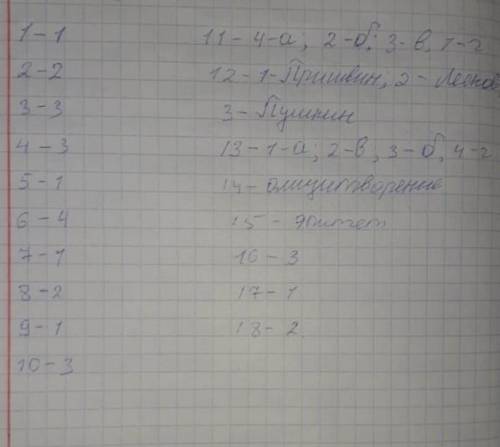 1 - 1
2 - 2
3 - 3
4 - 3
5 - 1
6 - 4
7 - 1
8 - 2
9 - 1
10 - 3
11 - 4-а; 2-б; 3-в, 1-г
12 - 1-Пришвин, 2 - Леонов
3 - Пушкин
13 - 1-а; 2-в, 3-б, 4-г
14 - олицетворение
15 - эпитет
16 - 3
17 - 1
18 - 2